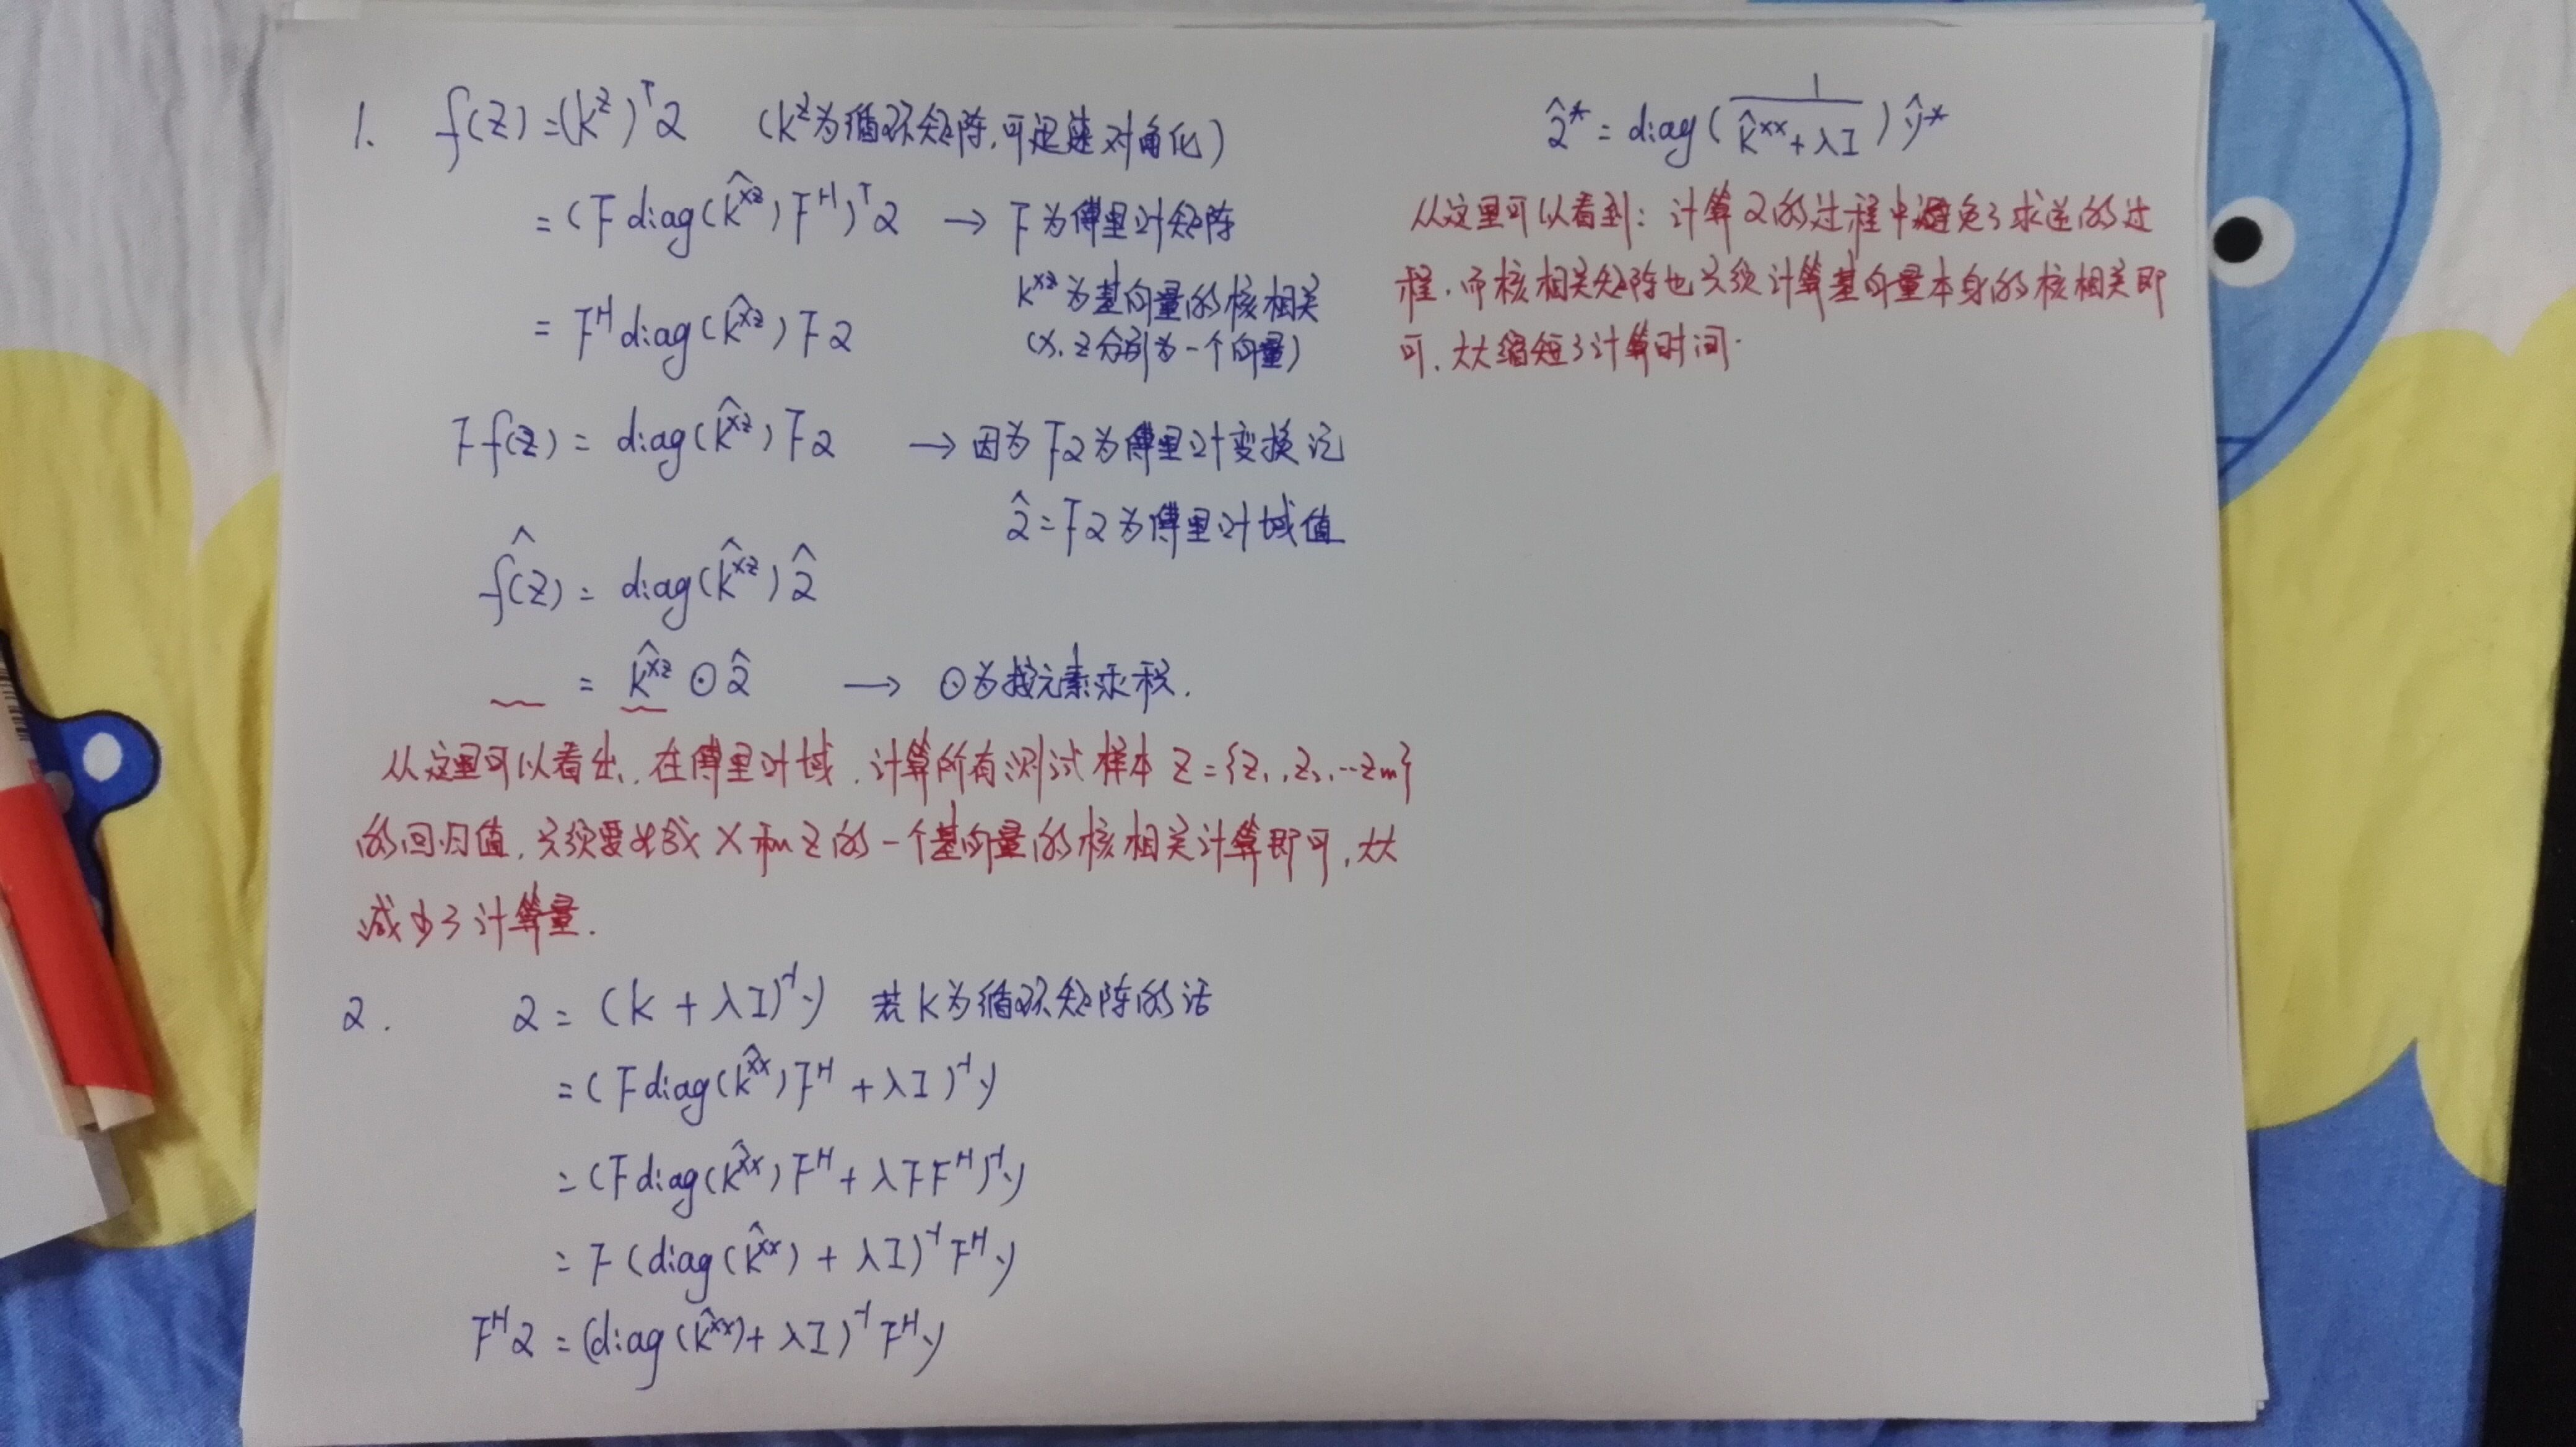 1. f(z) = (k^z)^T α (k^z为循环矩阵,可迅速对角化)
= (F diag(k̂^xz) F^H)^T α → F为傅里叶矩阵
= F^H diag(k̂^xz) F α k^xz为基向量的核相关
(x、z分别为一个向量)
F f(z) = diag(k̂^xz) F α → 因为Fα为傅里叶变换记
α̂ = Fα为傅里叶域值
f̂(z) = diag(k̂^xz) α̂
= k̂^xz ⊙ α̂ → ⊙为按元素求积.
从这里可以看出,在傅里叶域,计算所有测试样本 Z = {z1, z2, ... zm}
的回归值,只须要完成 X 和 Z 的一个基向量的核相关计算即可,大大
减少了计算量.
2. α = (k + λI)^-1 y 若k为循环矩阵的话
= (F diag(k̂^xx) F^H + λI)^-1 y
= (F diag(k̂^xx) F^H + λFF^H)^-1 y
= F (diag(k̂^xx) + λI)^-1 F^H y
F^H α = (diag(k̂^xx) + λI)^-1 F^H y
α̂* = diag( 1 / (k̂^xx + λI) ) ŷ*
从这里可以看到:计算α的过程中避免了求逆的过
程.而核相关矩阵也只须计算基向量本身的核相关即
可.大大缩短了计算时间.